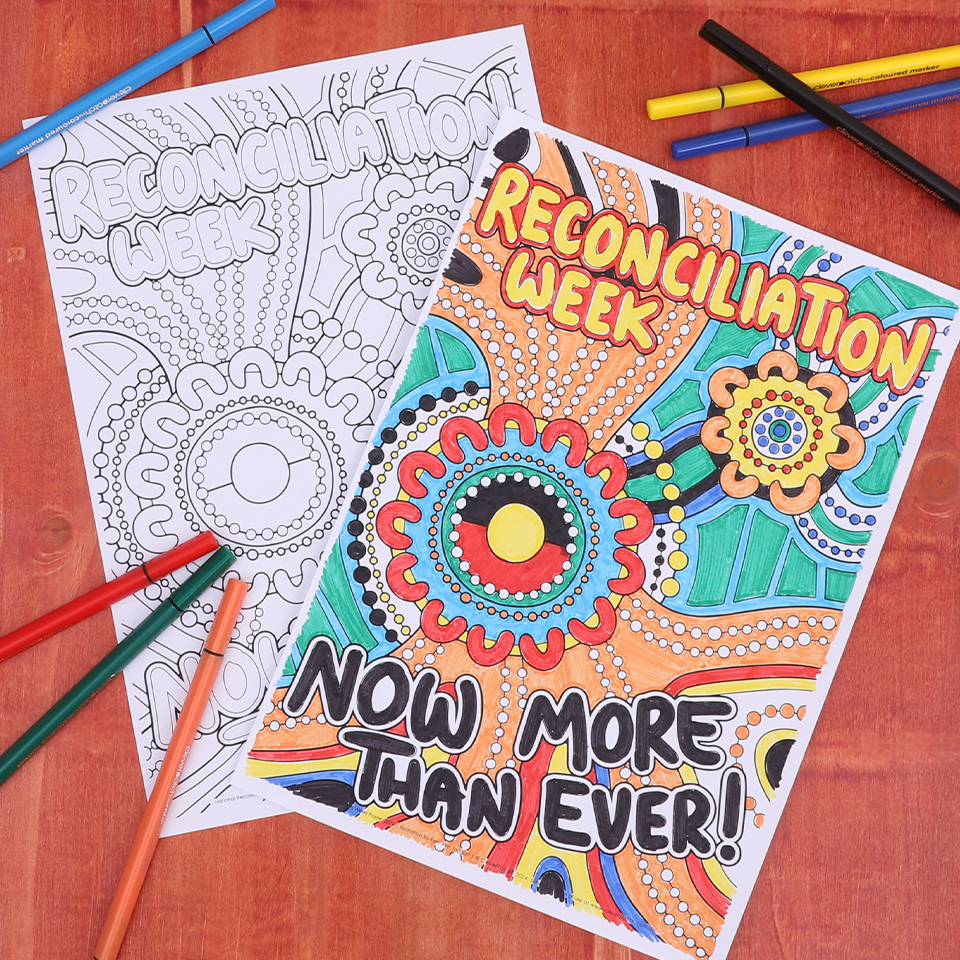 cleverpatch coloured marker
cleverpatch coloured marker
coloured marker
cleverpatch coloured marker
RECONCILIATION
WEEK
NOW
RECONCILIATION
WEEK
NOW MORE
THAN EVER!